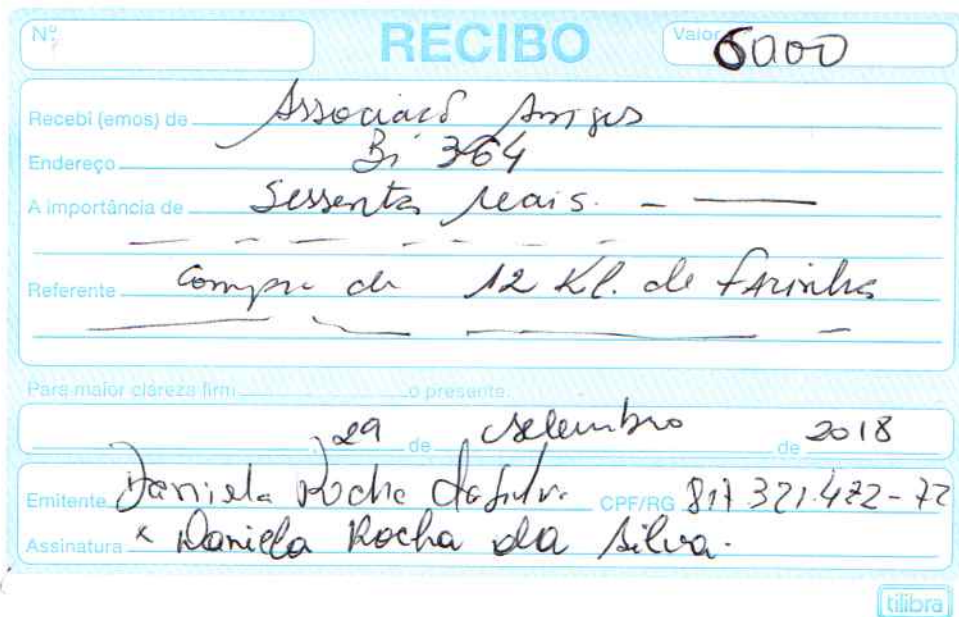 Nº
RECIBO
Valor 6000
Recebi (emos) de Associacó Amigos
Endereço Br 364
A importância de Sessenta reais. - —
Referente Compra de 12 Kl. de farinha
Para maior clareza firm o presente.
29 de Setembro de 2018
Emitente Daniela Rocha da Silv. CPF/RG 817 321.422-72
Assinatura x Daniela Rocha da Silva.
tilibra